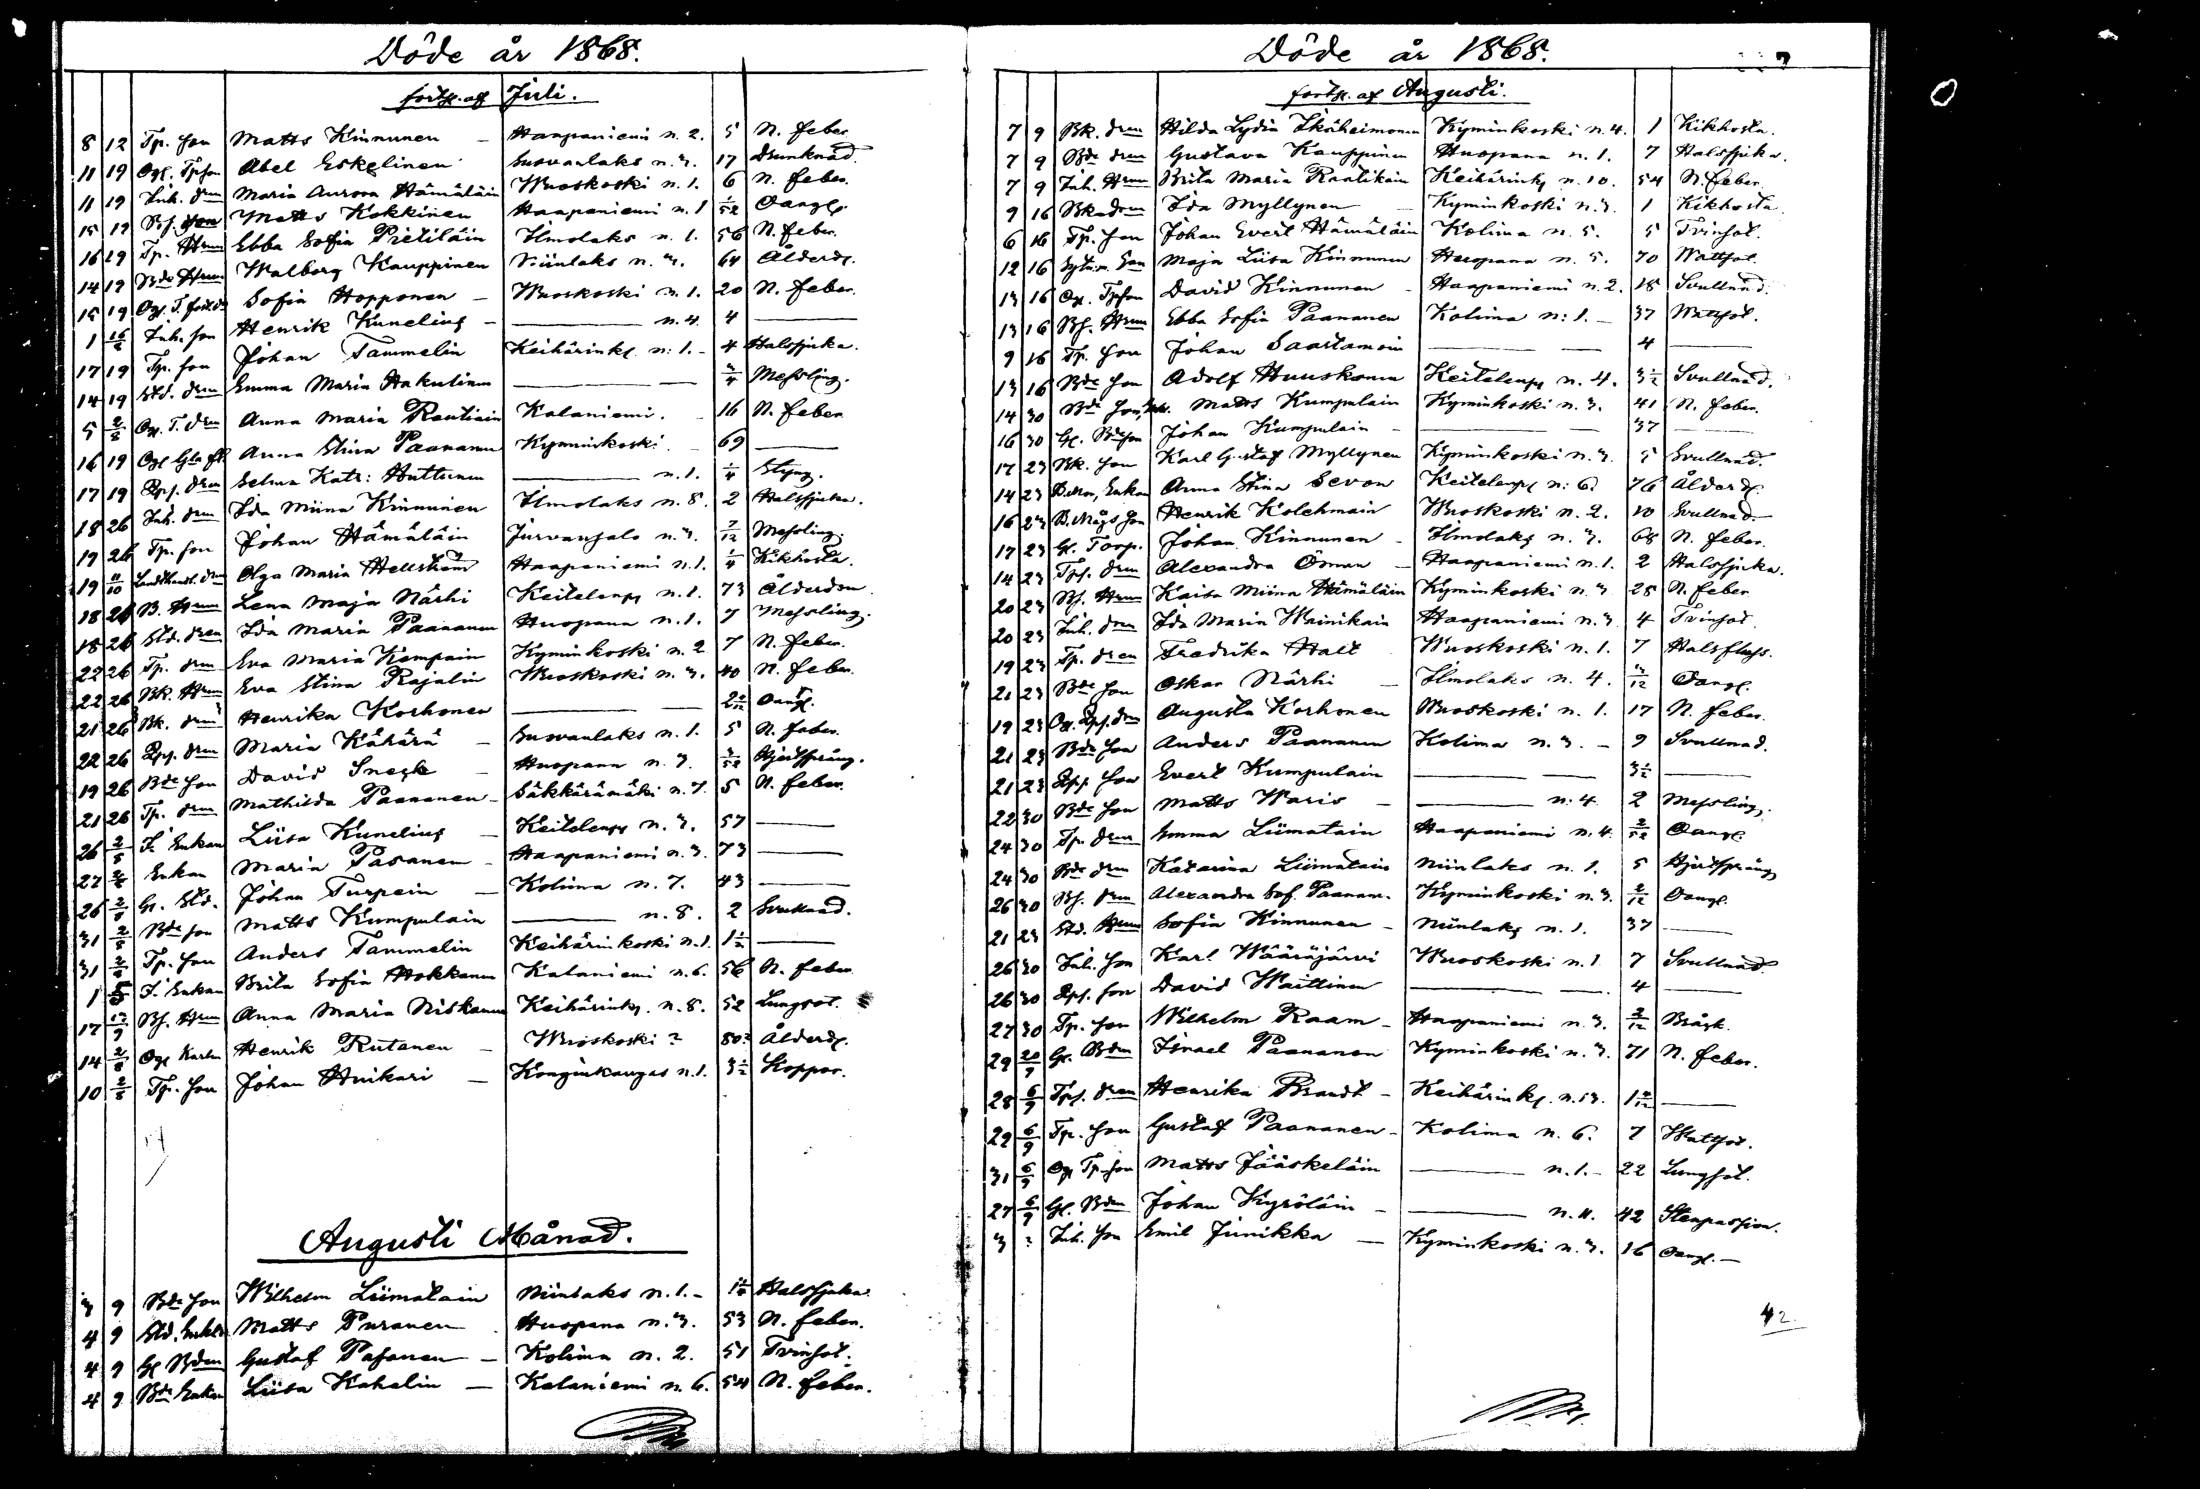 Döde år 1868.
forts. af Juli.
8 12 Tp. son Matts Kinnunen – Haapaniemi n. 2. 5 N. feber
11 19 Ogf. Tpson Abel Eskelinen Suovanlaks n. 3. 17 Drunknad.
11 19 Inh. dren Maria Aurora Hämäläin Wuoskoski n. 1. 6 N. feber.
15 19 Bf. son Matts Kokkinen Haapaniemi n. 1 1/52 Oangf.
16 19 Tp. Hrun Ebba Sofia Pietiläin Ilmolaks n. 1. 56 N. feber.
14 19 Bde Hrun Walborg Kauppinen Niinlaks n. 3. 64 Ålderd.
15 19 Sofia Hopponen – Wuoskoski n. 1. 20 N. feber.
1 Inh. son Henrik Kunelius – n. 4. 4 —
17 19 Tp. son Johan Tammelin Keihärink. n: 1. – 4 Halssjuka.
14 19 Std. dren Emma Maria Hakulinen — 3/4 Messling.
5 2/8 Og. T. dren Anna Maria Rautiain Kalaniemi. – 16 N. feber
16 19 Anna Stina Paananen Kyminkoski – 69 —
17 19 dren Selma Katr: Huttunen — n. 1. 1/4 Slag.
18 26 Inh. dren Ida Miina Kinnunen Ilmolaks n. 8. 2 Halssjuka.
19 26 Tp. son Johan Hämäläin Jurvansalo n. 3. 7/12 Messling
19 11/10 Landthandl. dren Olga Maria Hellström Haapaniemi n. 1. 1/4 Kikhosta.
18 26 B. Hrun Lena Maja Närhi Keitelenp n. 1. 73 Ålderdom
18 26 Std. dren Ida Maria Paananen Huopana n. 1. 7 Messling.
22 26 Tp. dren Eva Maria Kempain Kyminkoski n. 2 7 N. feber.
22 26 Bk. Hrun Eva Stina Rajalin Wuoskoski n. 3. 40 N. feber.
21 26 Bk. dren Henrika Korhonen — 2 2/12 Oangf.
22 26 dren Maria Kähärä – Suovanlaks n. 1. 5 N. feber.
19 26 Bde son David Sneck – Huopana n. 7. 3/52 Hjertsprång.
21 26 Tp. dren Mathilda Paananen – Säkkärämäki n. 7. 5 N. feber.
26 2/8 Enkan Liisa Kunelius – Keitelenp n. 3. 57 —
27 2/8 Enkan Maria Pasanen – Haapaniemi n. 3. 73 —
26 2/8 Gl. Std. Johan Turpein – Kolima n. 7. 43 —
31 2/8 Bde son Matts Kumpulain — n. 8. 2 Svullnad.
31 2/8 Tp. son Anders Tammelin Keihärinkoski n. 1. 1 1/2 —
1 Enkan Brita Sofia Hokkanen Kalaniemi n. 6. 56 N. feber
17 Bf. Hrun Anna Maria Niskanen Keihärink. n. 8. 52 Lungsot.
14 2/8 Karlen Henrik Rutanen – Wuoskoski ? 80? Ålderd.
10 2/8 Tp. son Johan Huikari – Konginkangas n. 1. 3 1/2 Koppor.
Augusti Månad.
3 9 Bde son Wilhelm Liimatain Niinlaks n. 1. – Halssjuka
4 9 Std. Enkln Matts Puranen Huopana n. 3. 53 N. feber.
4 9 Gl Bden Gustaf Pasanen – Kolima n. 2. 51 Tvinsot.
4 9 Bde Enkan Liisa Kahelin – Kalaniemi n. 6. 54 N. feber.
Döde år 1868.
forts. af Augusti.
7 9 Bk. dren Hilda Lydia Ikäheimonen Kyminkoski n. 4. 1 Kikhosta.
7 9 Bde dren Gustava Kauppinen Huopana n. 1. 7 Halssjuka.
7 9 Inh. Hrun Brita Maria Raatikain Keihärink n. 10. 54 N. feber.
9 16 Bk dren Ida Myllynen – Kyminkoski n. 3. 1 Kikhosta
6 16 Tp. son Johan Evert Hämäläin Kolima n. 5. 5 Tvinsot.
12 16 Maja Liisa Kinnunen Huopana n. 5. 70 Wattsot.
13 16 Og. Tpson David Kinnunen – Haapaniemi n. 2. 18 Svullnad.
13 16 Bf. Hrun Ebba Sofia Paananen Kolima n: 1. – 37 Wattsot.
9 16 Tp. son Johan Saastamoin — 4 —
13 16 Bde son Adolf Huuskonen Keitelenp n. 4. 3 1/2 Svullnad.
14 30 Bde son Matts Kumpulain Kyminkoski n. 3. 41 N. feber.
16 30 Gl. Bdeson Johan Kumpulain – — 37 —
17 23 Bk. son Karl Gustaf Myllynen Kyminkoski n. 3. 5 Svullnad.
14 23 Enkan Anna Stina Sevon Keitelenp n: 6. 76 Ålderd.
16 23 B. Mågs son Henrik Kolehmain Wuoskoski n. 2. 10 Svullnad.
17 23 Gl. Torp. Johan Kinnunen – Ilmolaks n. 3. 68 N. feber.
14 23 Tps. dren Alexandra Öman – Haapaniemi n. 1. 2 Halssjuka.
20 23 Bf. Hrun Kaisa Miina Hämäläin Kyminkoski n. 3 28 N. feber
20 23 Inh. dren Ida Maria Wainikain Haapaniemi n. 3 4 Tvinsot.
19 23 Tp. dren Fredrika Halt Wuoskoski n. 1. 7 Halsfluss.
21 23 Bde son Oskar Närhi – Ilmolaks n. 4. 3/12 Oangf.
19 23 Og. dren Augusta Korhonen Wuoskoski n. 1. 17 N. feber.
21 23 Bde son Anders Paananen Kolima n. 3. – 9 Svullnad.
21 23 son Evert Kumpulain — 3 1/2 —
22 30 Bde son Matts Waris – — n: 4. 2 Messling.
24 30 Tp. dren Emma Liimatain Haapaniemi n. 4. 2/52 Oangf.
24 30 Bde dren Katarina Liimatain Niinlaks n. 1. 5 Hjertsprång
26 30 Bf. dren Alexandra Sof. Paanan. Kyminkoski n. 3. 2/12 Oangf.
21 23 Std. Hrun Sofia Kinnunen – Niinlaks n. 1. 37 —
26 30 Inh. son Karl Wääräjärvi Wuoskoski n. 1 7 Svullnad
26 30 son David Waittinen — 4 —
27 30 Tp. son Wilhelm Raam – Haapaniemi n. 3. 2/12 Bråck.
29 20/9 Gl. Bden Israel Paananen Kyminkoski n. 3. 71 N. feber.
28 6/9 Tps. dren Henrika Brandt – Keihärink. n. 13. —
29 6/9 Tp. son Gustaf Paananen – Kolima n. 6. 7 Wattsot.
31 6/9 Og Tp. son Matts Jääskeläin — n. 1. – 22 Lungsot.
27 6/9 Gl. Bden Johan Kyröläin – — n. 11. 42 Stenpassion.
3 ? Inh. son Emil Jinikka – Kyminkoski n. 3. 16 Oangf. –
42.